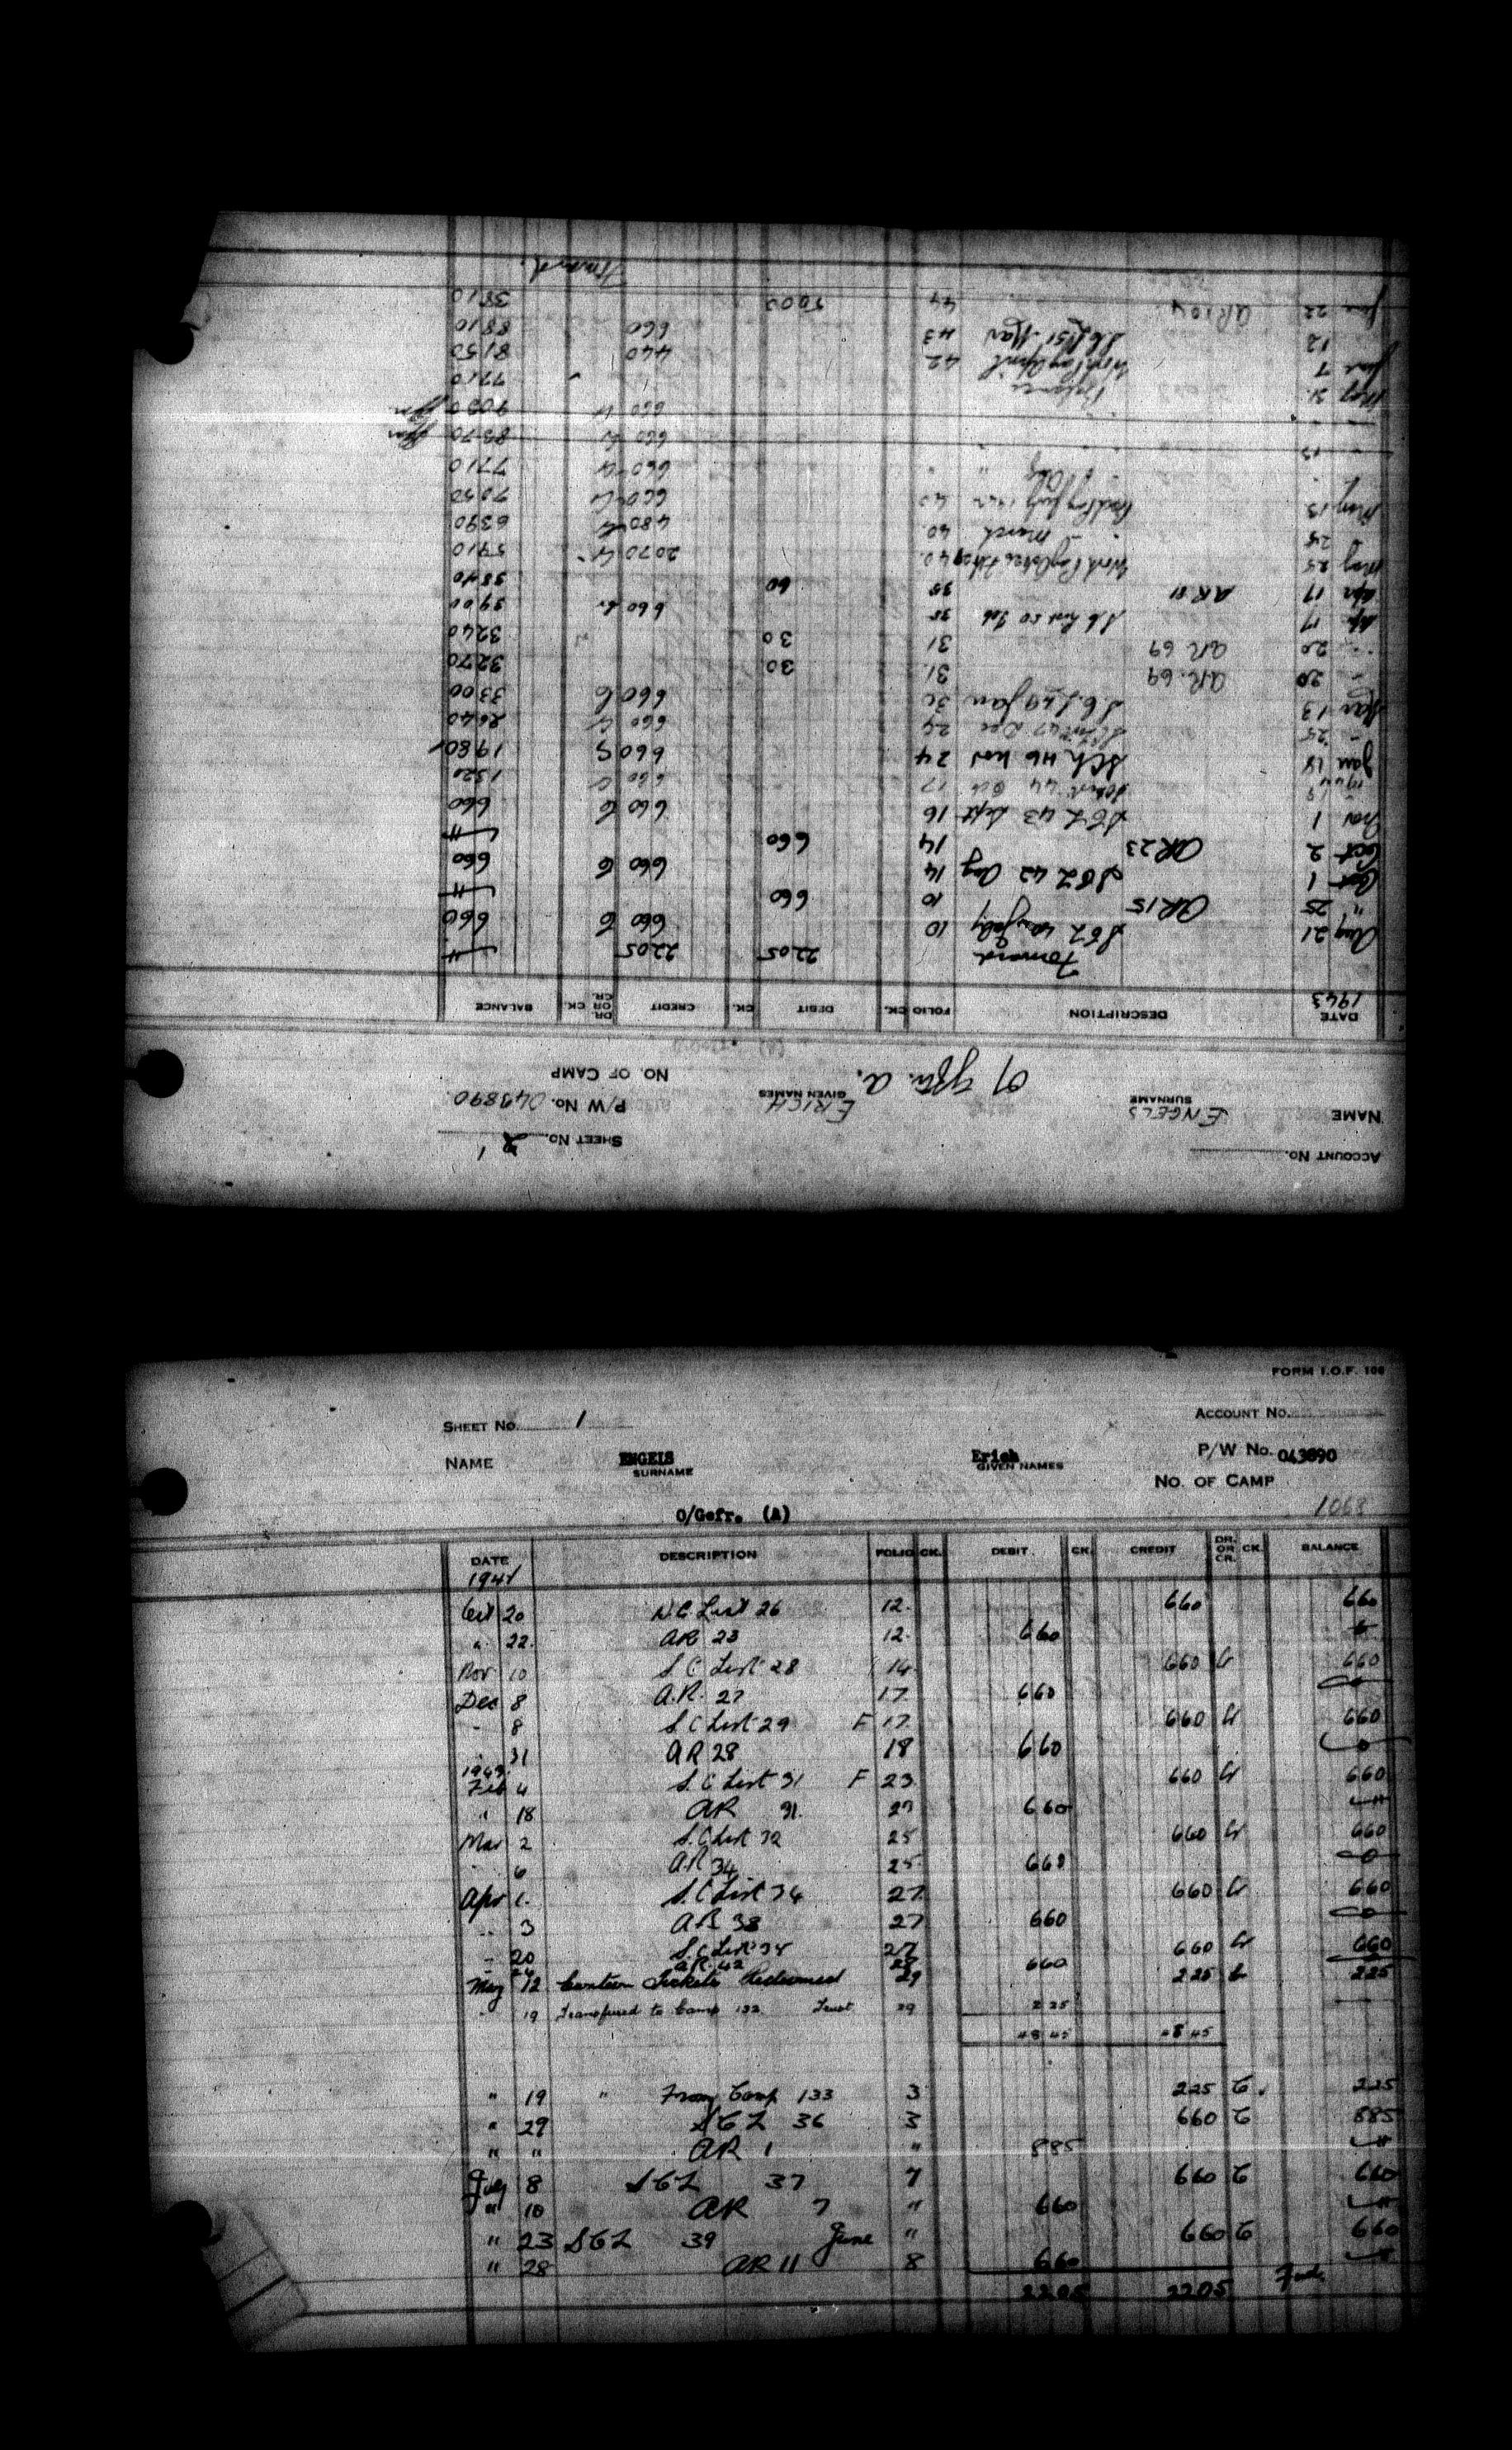 ACCOUNT No.
SHEET No. 2 1
NAME ENGELS ERICH P/W No. 043890
SURNAME GIVEN NAMES
O/Gfr. a. NO. OF CAMP
DATE DESCRIPTION FOLIO CK. DEBIT CK. CREDIT DR. OR CR. CK. BALANCE
1943
Forward 2205 2205
Aug 21 July 10 660 660
" 25 AR15 10 660
Oct 1 SCL 42 Aug 14 660 660
Oct 2 AR23 14 660
Nov 1 SCL 43 Sept 16 660 660
18 44 Oct 17 660 1320
1944
Jan 18 46 Nov 24 660 1980
" 25 Dec 24 660 2640
Mar 13 S.C.L 49 Jan 30 660 3300
" 20 AR. 69 31. 30 3270
20 AR 69 31 30 3240
Apr 17 S.C. List 50 Feb 35 660 3900
Apr 17 AR 81 35 60 3840
May 25 Work Pay 40. 2070 5910
" 25 March 40. 480 6390
May 660 7050
660 7710
15 660 8370
660 9030
May 31. Balance 7710
June 7 Work Pay April 42 440 8150
12 S.C.L 51 Mar 43 660 8810
June 22 AR104 44 5000 3810
Forward.
FORM I.O.F. 100
SHEET No. 1 ACCOUNT No.
NAME ENGELS Erich P/W No. 043890
SURNAME GIVEN NAMES
NO. OF CAMP
O/Gefr. (A)
DATE DESCRIPTION FOLIO CK. DEBIT CK. CREDIT DR. OR CR. CK. BALANCE
Oct 20 List 26 12. 660 660
" 22. AR 23 12. 660
Nov 10 S C List 28 14 660 Cr 660
Dec 8 A.R. 27 17 660 0
" 8 S.C List 29 F 17 660 Cr 660
31 AR 28 18 660 0
1943
Feb 4 S.C List 31 F 23 660 Cr 660
" 18 AR 31. 660
Mar 2 S.C List 32 25 660 Cr 660
" 6 AR 34 25 660 0
Apr 1. S.C List 34 27 660 Cr 660
" 3 AR 38 27 660 0
" 20 S.C List 27 660 Cr 660
24 A.R. 42 660
May 12 Canteen Tickets Redeemed 29 225 Cr 225
" 19 Transferred to Camp Trust 29 225
4845 4845
" 19 " From Camp 133 3 225 C 225
" 29 SCL 36 3 660 C 885
" " AR 1 " 885
July 8 SCL 37 7 660 C 660
" 10 AR 7 " 660
" 23 SCL 39 June " 660 C 660
" 28 AR 11 8 660
2205 2205 Fwd.